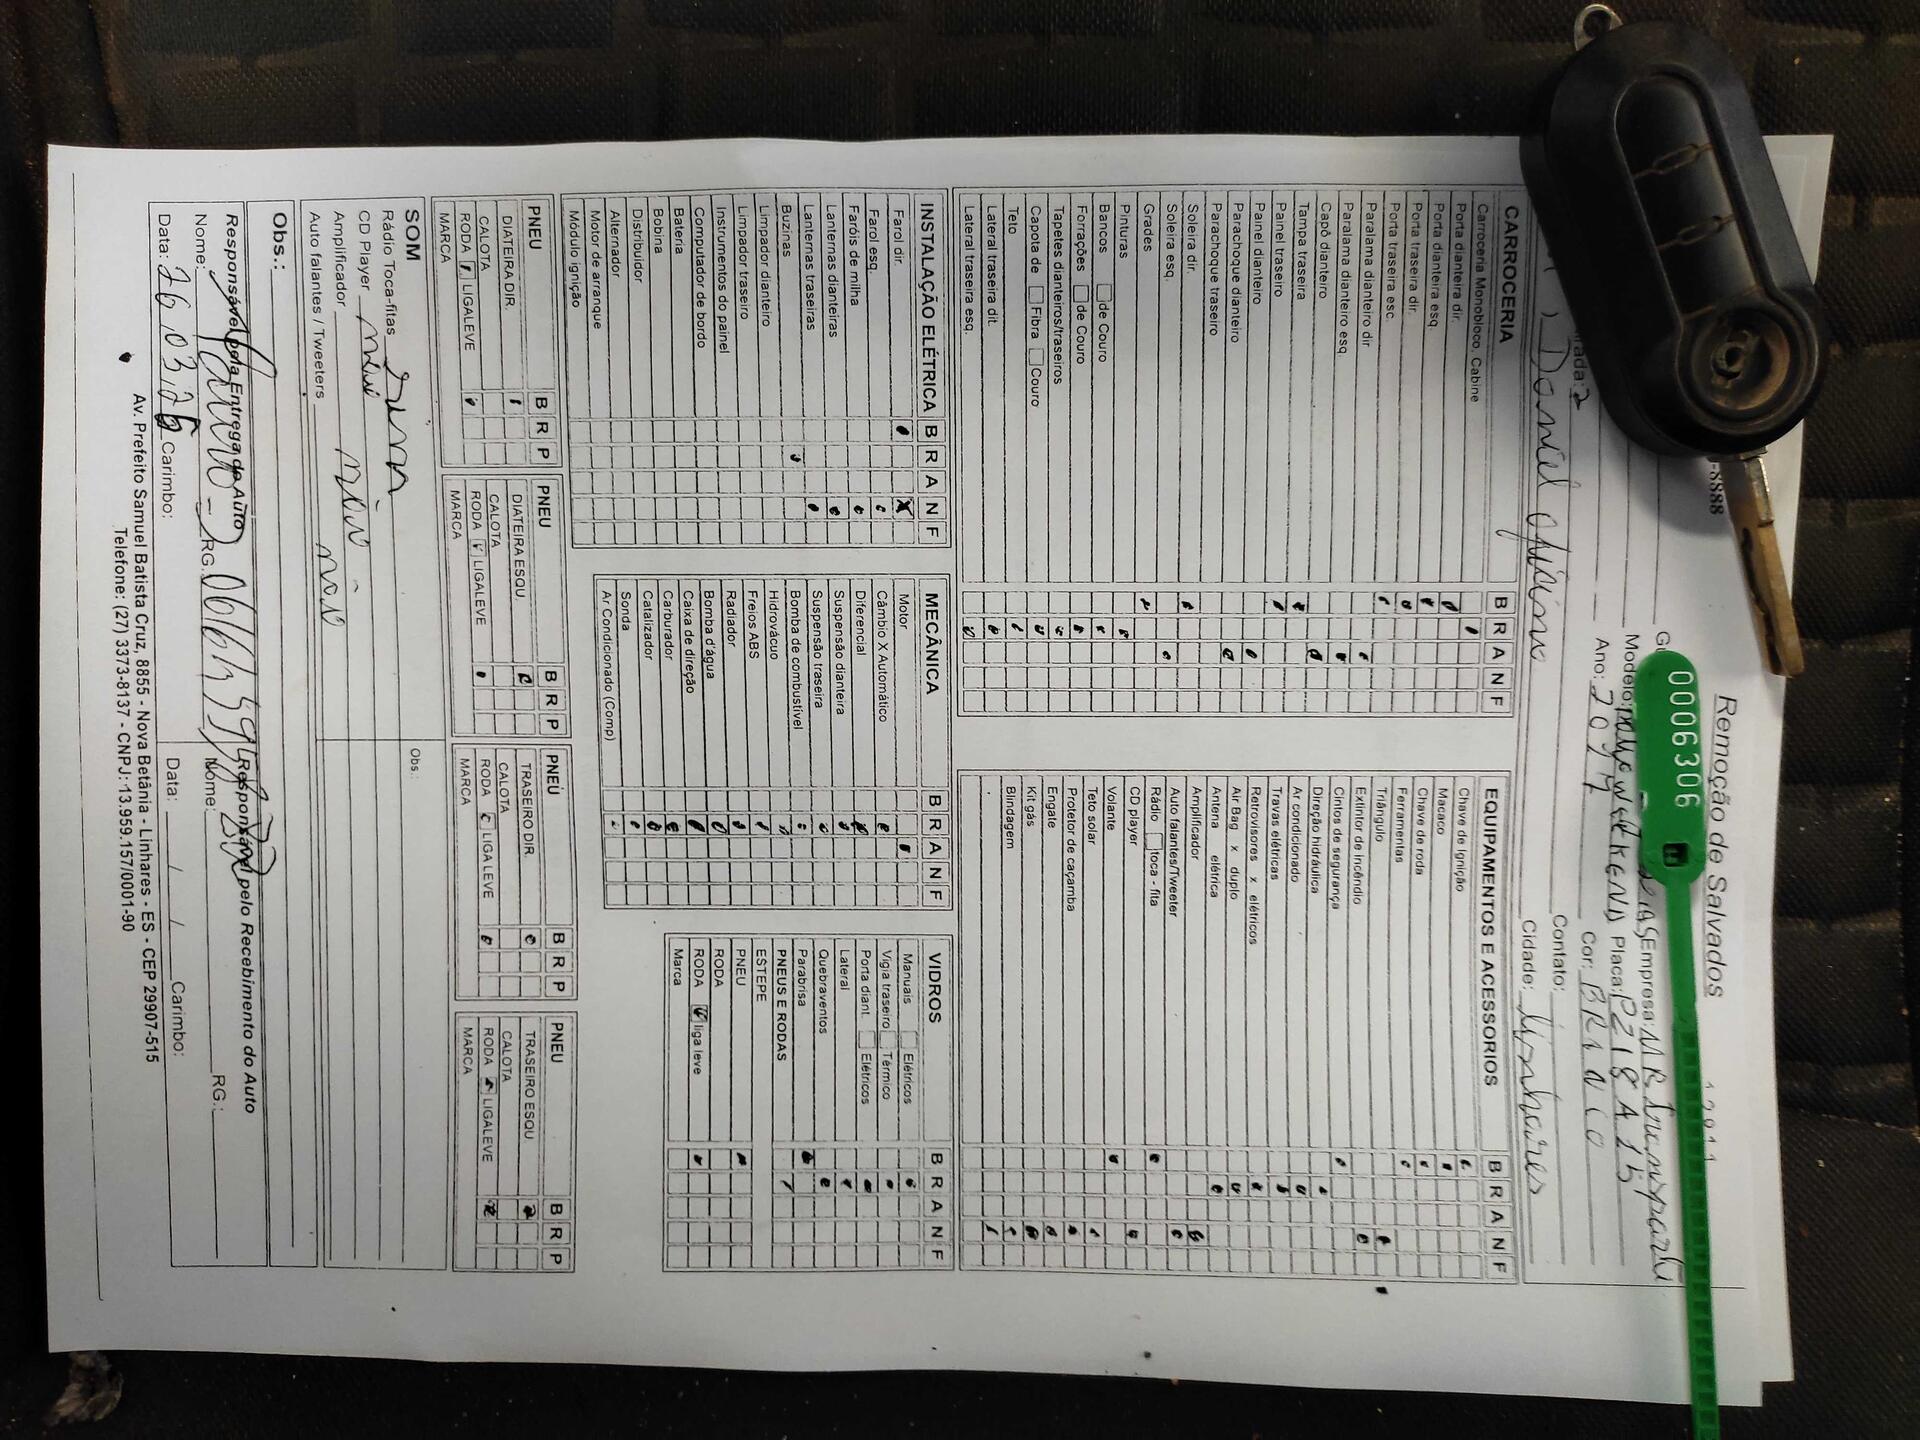 Remoção de Salvados
-8888
Empresa:
Modelo: Placa: PZI8A15
Ano: Cor: BRANCO
Contato:
Daniel Cidade: Linhares
CARROCERIA B R A N F
Carroceria Monobloco, Cabine
Porta dianteira dir.
Porta dianteira esq.
Porta traseira dir.
Porta traseira esc.
Paralama dianteiro dir
Paralama dianteiro esq.
Capô dianteiro
Tampa traseira
Painel traseiro
Painel dianteiro
Parachoque dianteiro
Parachoque traseiro
Soleira dir.
Soleira esq.
Grades
Pinturas
Bancos de Couro
Forrações de Couro
Tapetes dianteiros/traseiros
Capota de Fibra Couro
Teto
Lateral traseira dit.
Lateral traseira esq.
EQUIPAMENTOS E ACESSORIOS B R A N F
Chave de ignição
Macaco
Chave de roda
Ferramentas
Triângulo
Extintor de incêndio
Cintos de segurança
Direção hidráulica
Ar condicionado
Travas elétricas
Retrovisores x elétricos
Air Bag x duplo
Antena elétrica
Amplificador
Auto falantes/Tweeter
Rádio toca - fita
CD player
Volante
Teto solar
Protetor de caçamba
Engate
Kit gás
Blindagem
INSTALAÇÃO ELÉTRICA B R A N F
Farol dir.
Farol esq.
Faróis de milha
Lanternas dianteiras
Lanternas traseiras
Buzinas
Limpador dianteiro
Limpador traseiro
Instrumentos do painel
Computador de bordo
Bateria
Bobina
Distribuidor
Alternador
Motor de arranque
Módulo ignição
MECÂNICA B R A N F
Motor
Câmbio X Automático
Diferencial
Suspensão dianteira
Suspensão traseira
Bomba de combustível
Hidrovácuo
Freios ABS
Radiador
Bomba d'água
Caixa de direção
Carburador
Catalizador
Sonda
Ar Condicionado (Comp)
VIDROS B R A N F
Manuais Elétricos
Vigia traseiro Térmico
Porta diant. Elétricos
Lateral
Quebraventos
Parabrisa
PNEUS E RODAS
ESTEPE
PNEU
RODA
RODA liga leve
Marca
PNEU B R P
DIATEIRA DIR.
CALOTA
RODA LIGALEVE
MARCA
PNEU B R P
DIATEIRA ESQU.
CALOTA
RODA LIGALEVE
MARCA
PNEU B R P
TRASEIRO DIR.
CALOTA
RODA LIGA LEVE
MARCA
PNEU B R P
TRASEIRO ESQU
CALOTA
RODA LIGALEVE
MARCA
SOM Obs.:
Rádio Toca-fitas
CD Player
Amplificador não
Auto falantes / Tweeters não
Obs.:
Responsável pela Entrega do Auto
Nome: RG.:
Data: 26 03 26 Carimbo:
Responsável pelo Recebimento do Auto
Nome: RG.:
Data: / / Carimbo:
Av. Prefeito Samuel Batista Cruz, 8855 - Nova Betânia - Linhares - ES - CEP 29907-515
Telefone: (27) 3373-8137 - CNPJ: 13.959.157/0001-90
0006306